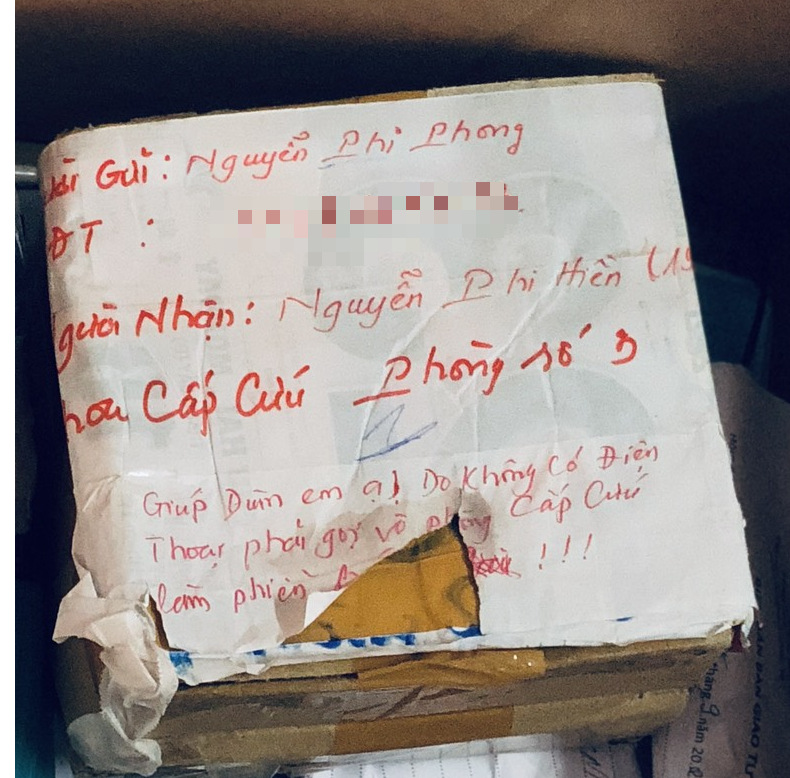 ười Gửi: Nguyễn Phi Phong
ĐT :
gười Nhận: Nguyễn Phi Hiền (19
hoa Cấp Cứu Phòng số 3
Giúp Dùm em ạ) Do Không Có Điện
Thoại phải gọi về phòng Cấp Cứu
làm phiền !!!
BÀN GIAO
tháng 9 năm 20